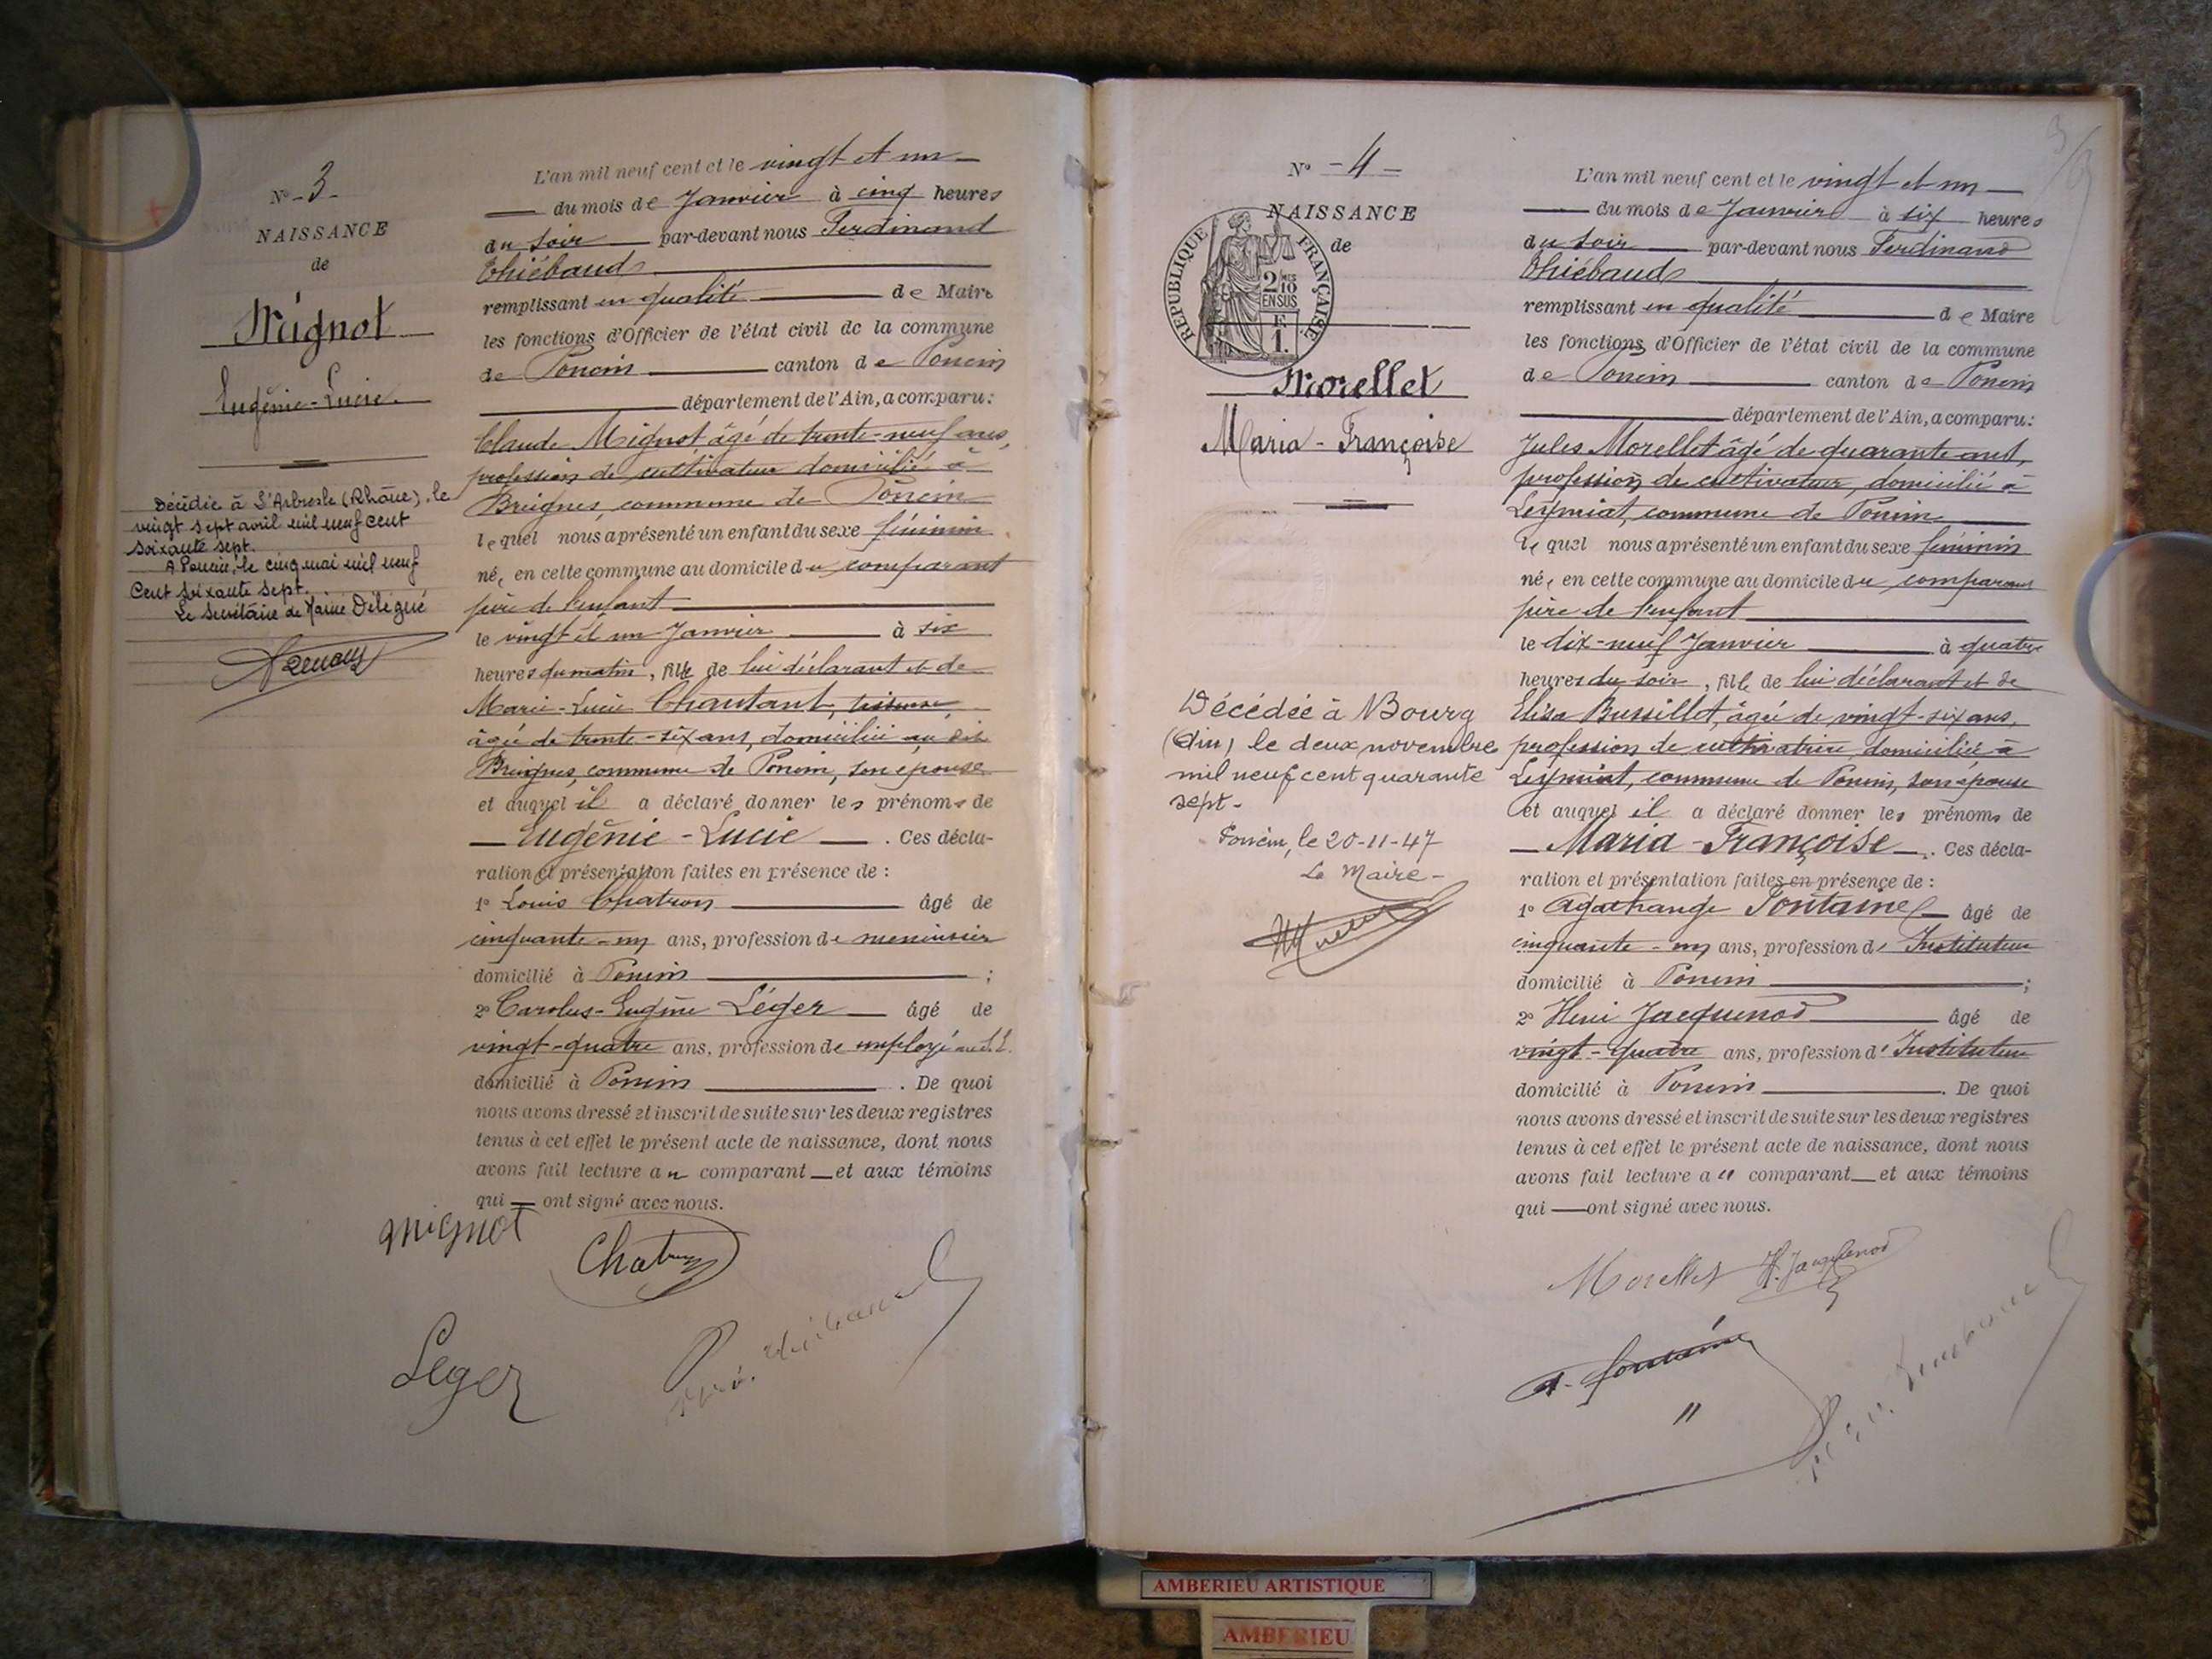 N° - 3 -
NAISSANCE
de
Mignot
Eugénie-Lucie.
Décédée à L'Arbresle (Rhône), le
vingt sept avril mil neuf cent
soixante sept.
A Poncin, le cinq mai mil neuf
Cent soixante sept.
Le Secrétaire de Mairie Délégué
L'an mil neuf cent et le vingt et un
du mois de Janvier à cinq heures
du soir par-devant nous Ferdinand
Thiébaud
remplissant en qualité de Maire
les fonctions d'Officier de l'état civil de la commune
de Poncin canton de Poncin
département de l'Ain, a comparu:
Claude Mignot âgé de trente-neuf ans,
profession de cultivateur domicilié à
Breignes, commune de Poncin
lequel nous a présenté un enfant du sexe féminin
née, en cette commune au domicile du comparant
père de l'enfant
le vingt et un Janvier à six
heures du matin, fille de lui déclarant et de
Marie-Lucie Chautant,
âgée de trente-six ans, domiciliée au dit
Breignes, commune de Poncin, son épouse
et auquel il a déclaré donner les prénoms de
Eugénie-Lucie . Ces décla-
ration et présentation faites en présence de :
1° Louis Chatron âgé de
cinquante-un ans, profession de menuisier
domicilié à Poncin ;
2° Carolus-Eugène Léger âgé de
vingt-quatre ans, profession de employé
domicilié à Poncin . De quoi
nous avons dressé et inscrit de suite sur les deux registres
tenus à cet effet le présent acte de naissance, dont nous
avons fait lecture au comparant et aux témoins
qui ont signé avec nous.
Mignot
Chatron
Leger
N° - 4 -
NAISSANCE
de
REPUBLIQUE FRANÇAISE
2/10 MES
EN SUS
F.
1.
Morellet
Maria-Françoise
Décédée à Bourg
(Ain) le deux novembre
mil neuf cent quarante
sept-
Poncin, le 20-11-47
Le Maire-
L'an mil neuf cent et le vingt et un
du mois de Janvier à six heures
du soir par-devant nous Ferdinand
Thiébaud
remplissant en qualité de Maire
les fonctions d'Officier de l'état civil de la commune
de Poncin canton de Poncin
département de l'Ain, a comparu:
Jules Morellet âgé de quarante ans,
profession de cultivateur, domicilié à
Leymiat, commune de Poncin
lequel nous a présenté un enfant du sexe féminin
née, en cette commune au domicile du comparant
père de l'enfant
le dix-neuf Janvier à quatre
heures du soir, fille de lui déclarant et de
Elisa Bussillet, âgée de vingt-six ans,
profession de cultivatrice domiciliée à
Leymiat, commune de Poncin, son épouse
et auquel il a déclaré donner les prénoms de
Maria-Françoise . Ces décla-
ration et présentation faites en présence de :
1° Agathange Fontaine âgé de
cinquante-un ans, profession d'Instituteur
domicilié à Poncin ;
2° Henri Jacquenod âgé de
vingt-quatre ans, profession d'Instituteur
domicilié à Poncin . De quoi
nous avons dressé et inscrit de suite sur les deux registres
tenus à cet effet le présent acte de naissance, dont nous
avons fait lecture au comparant et aux témoins
qui ont signé avec nous.
Morellet H. Jacquenod
A. Fontaine
AMBERIEU ARTISTIQUE
AMBERIEU